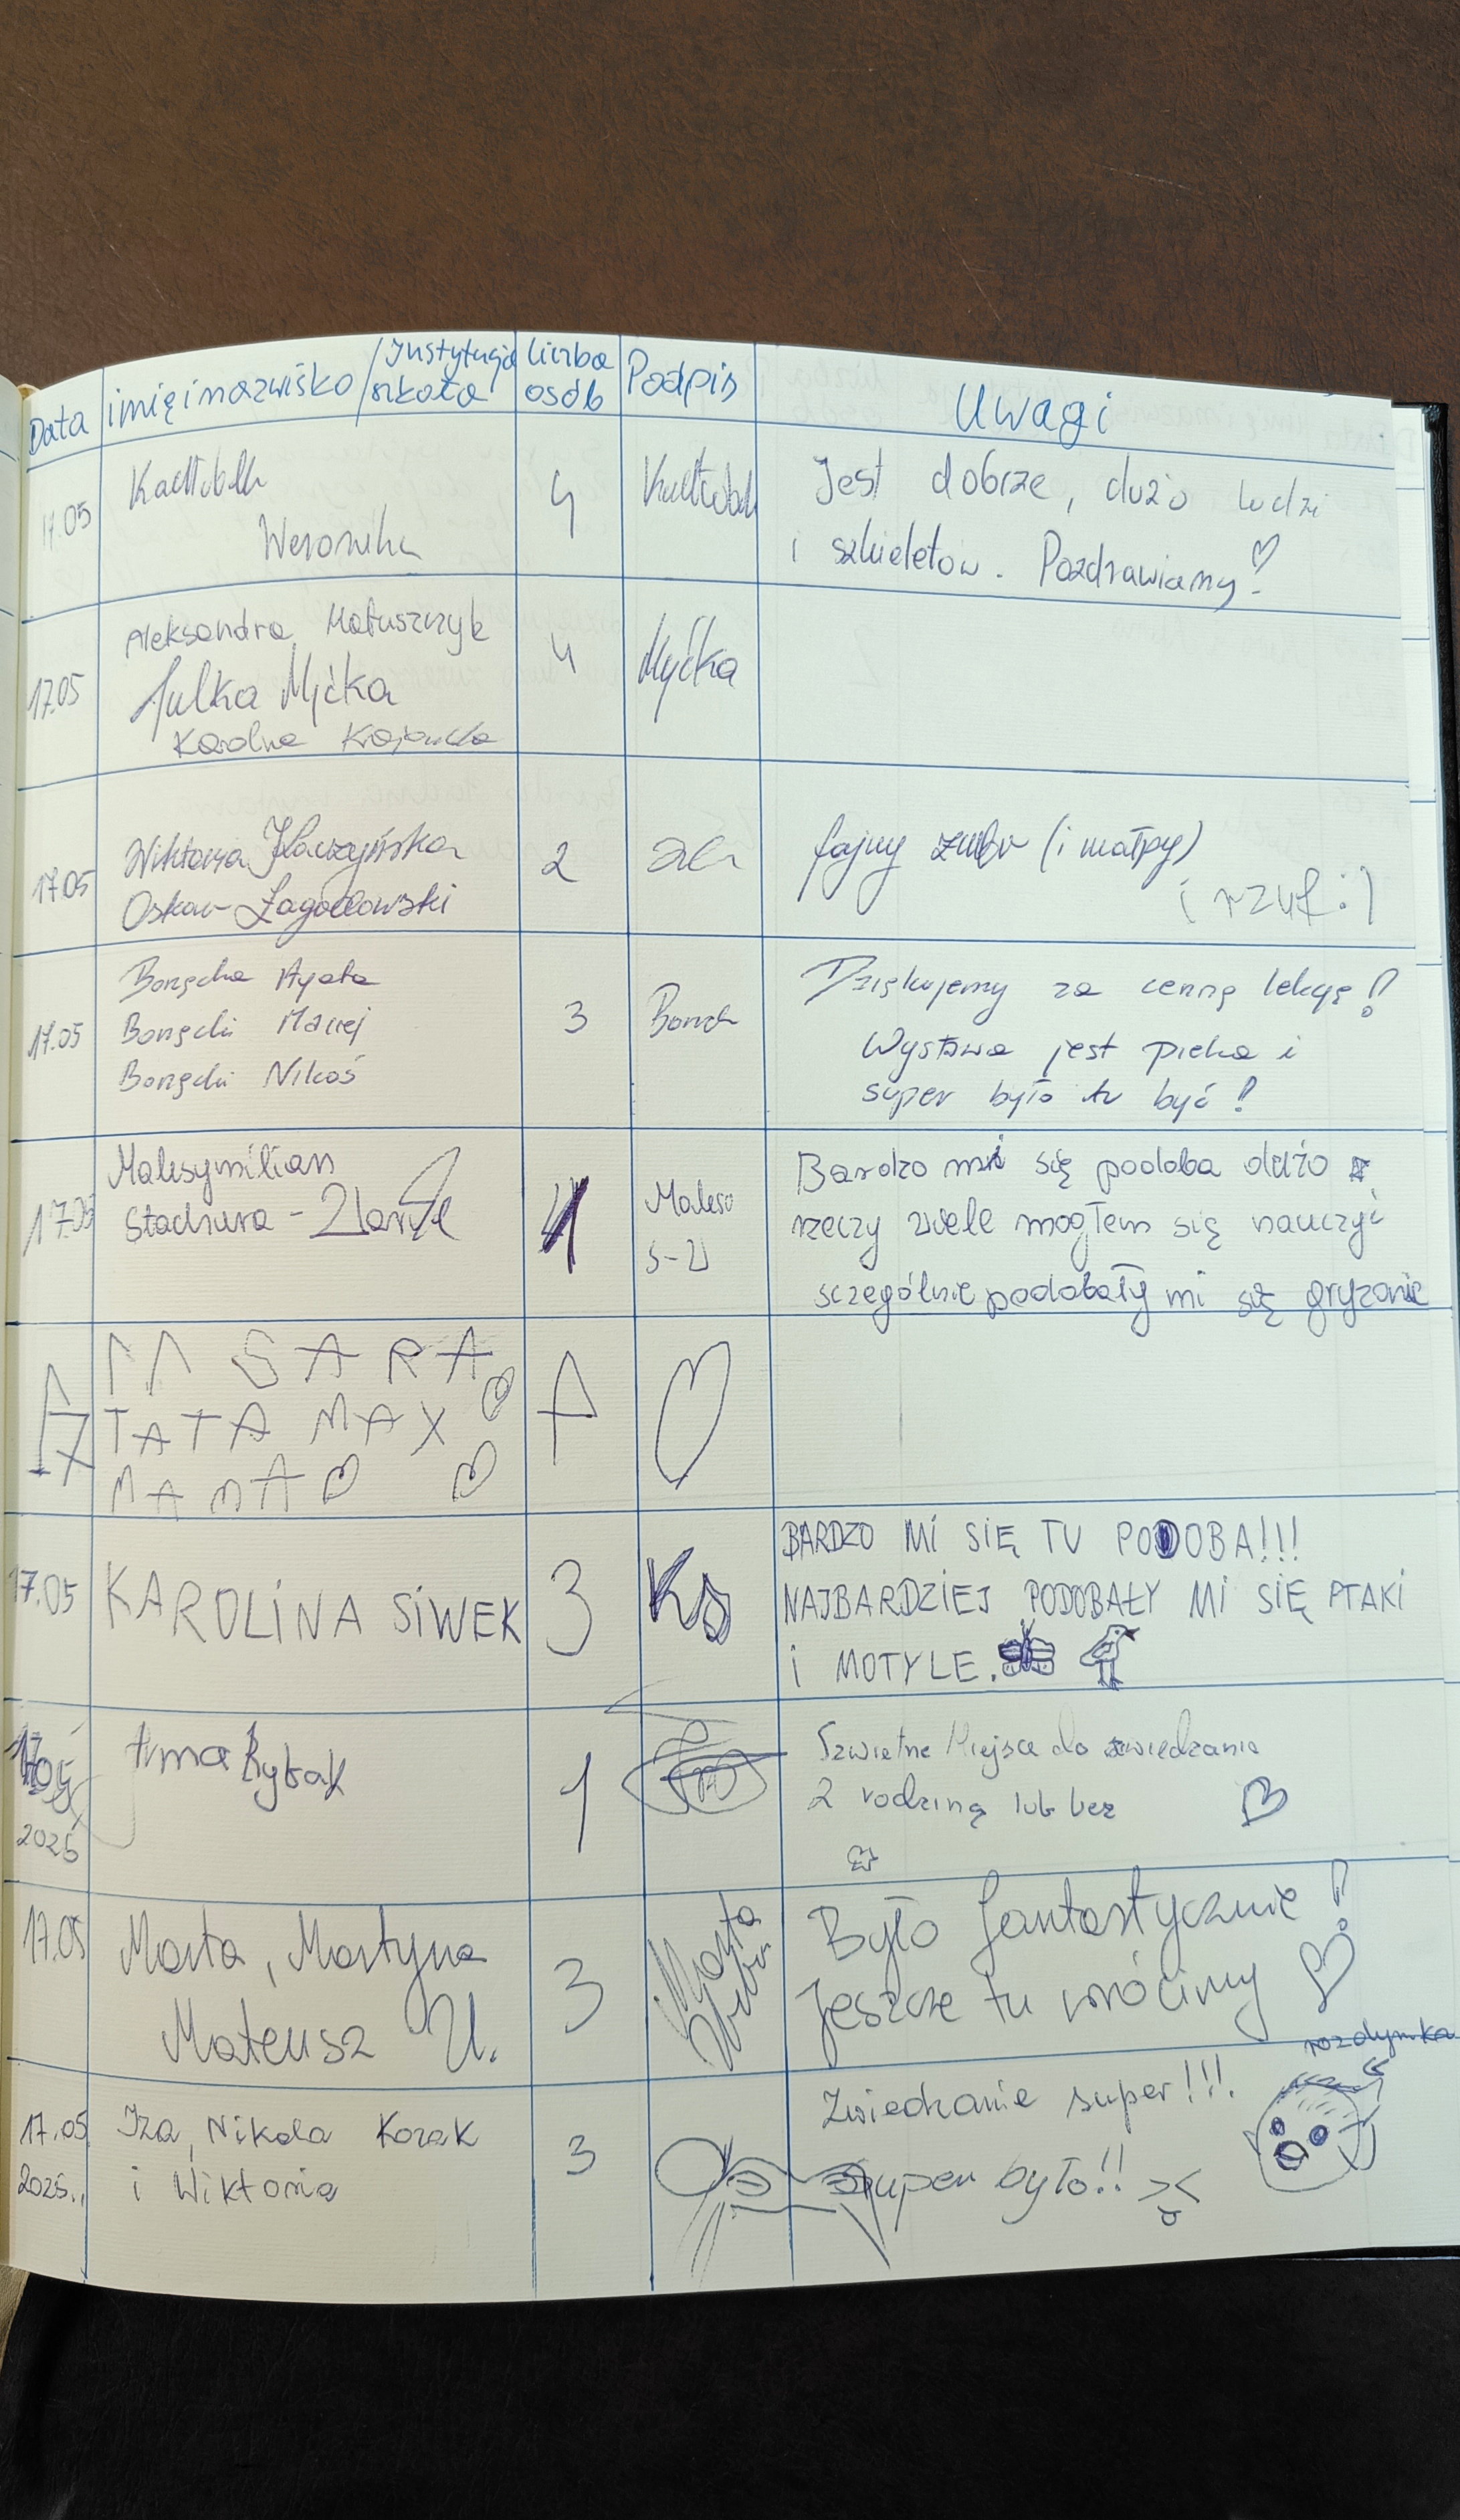 Data imię i nazwisko / Instytucja szkoła liczba osób Podpis Uwagi
17.05 Weronika 4 Jest dobrze, dużo ludzi
i szkieletów. Pozdrawiamy!
17.05 Aleksandra Matuszczyk 4 Myćka
Julka Myćka
Karolina
17.05 Wiktoria 2 fajny żubr (i małpy)
Oskar Łagodowski i rzuf :)
17.05 Bonęcka Agata 3 Dziękujemy za cenną lekcję!
Bonęcki Maciej Wystawa jest piekna i
Bonęcki Nikoś super było tu być!
17.05 Maksymilian Bardzo mi się podoba dużo
Stachura - rzeczy wiele mogłem się nauczyć
S-Z sczególnie podobały mi się gryzonie
17 SARA
TATA MAX
MAMA
17.05 KAROLINA SIWEK 3 KS BARDZO MI SIĘ TU PODOBA!!!
NAJBARDZIEJ PODOBAŁY MI SIĘ PTAKI
I MOTYLE.
17.05 Rybak 1 Szwietne Miejsce do zwiedzania
2025 z rodziną lub bez
17.05 Marta, Martyna 3 Marta Było fantastycznie!
Mateusz U. Jeszcze tu wrócimy
rozdymka
17.05 Iza, Nikola Kozak 3 Zwiedzanie super!!!
2025 i Wiktoria super było!! >.<